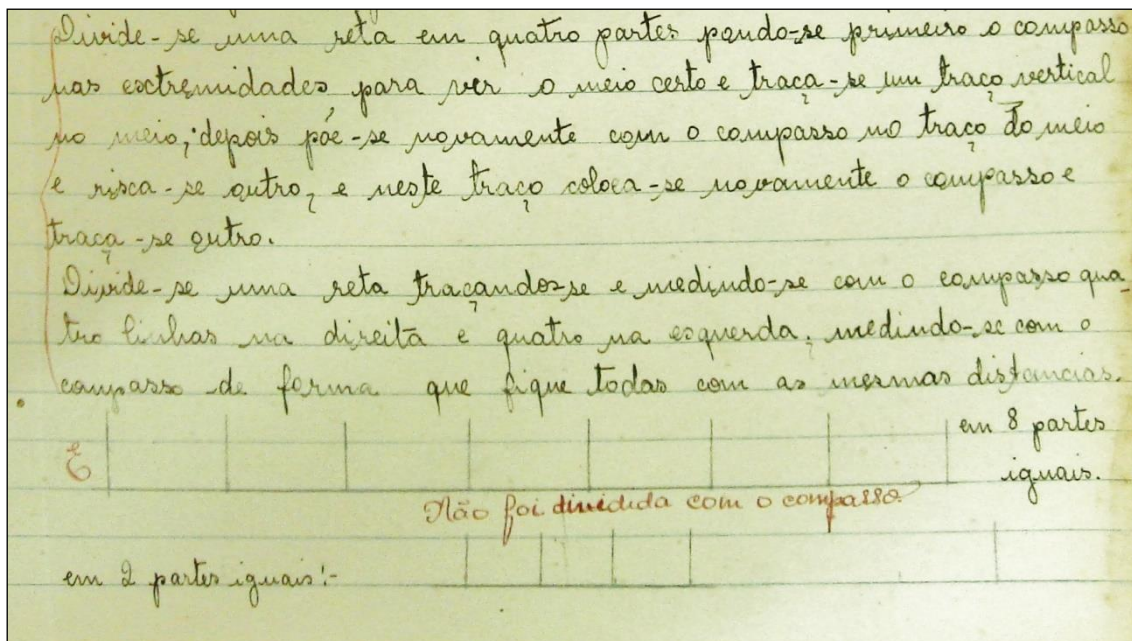 Divide-se uma reta em quatro partes pondo-se primeiro o compasso
nas extremidades para ver o meio certo e traça-se um traço vertical
no meio; depois põe-se novamente com o compasso no traço do meio
e risca-se outro, e neste traço coloca-se novamente o compasso e
traça-se outro.
Divide-se uma reta traçando-se e medindo-se com o compasso qua-
tro linhas na direita e quatro na esquerda, medindo-se com o
compasso de forma que fique todas com as mesmas distancias.
em 8 partes
iguais.
E
Não foi dividida com o compasso.
em 2 partes iguais:-